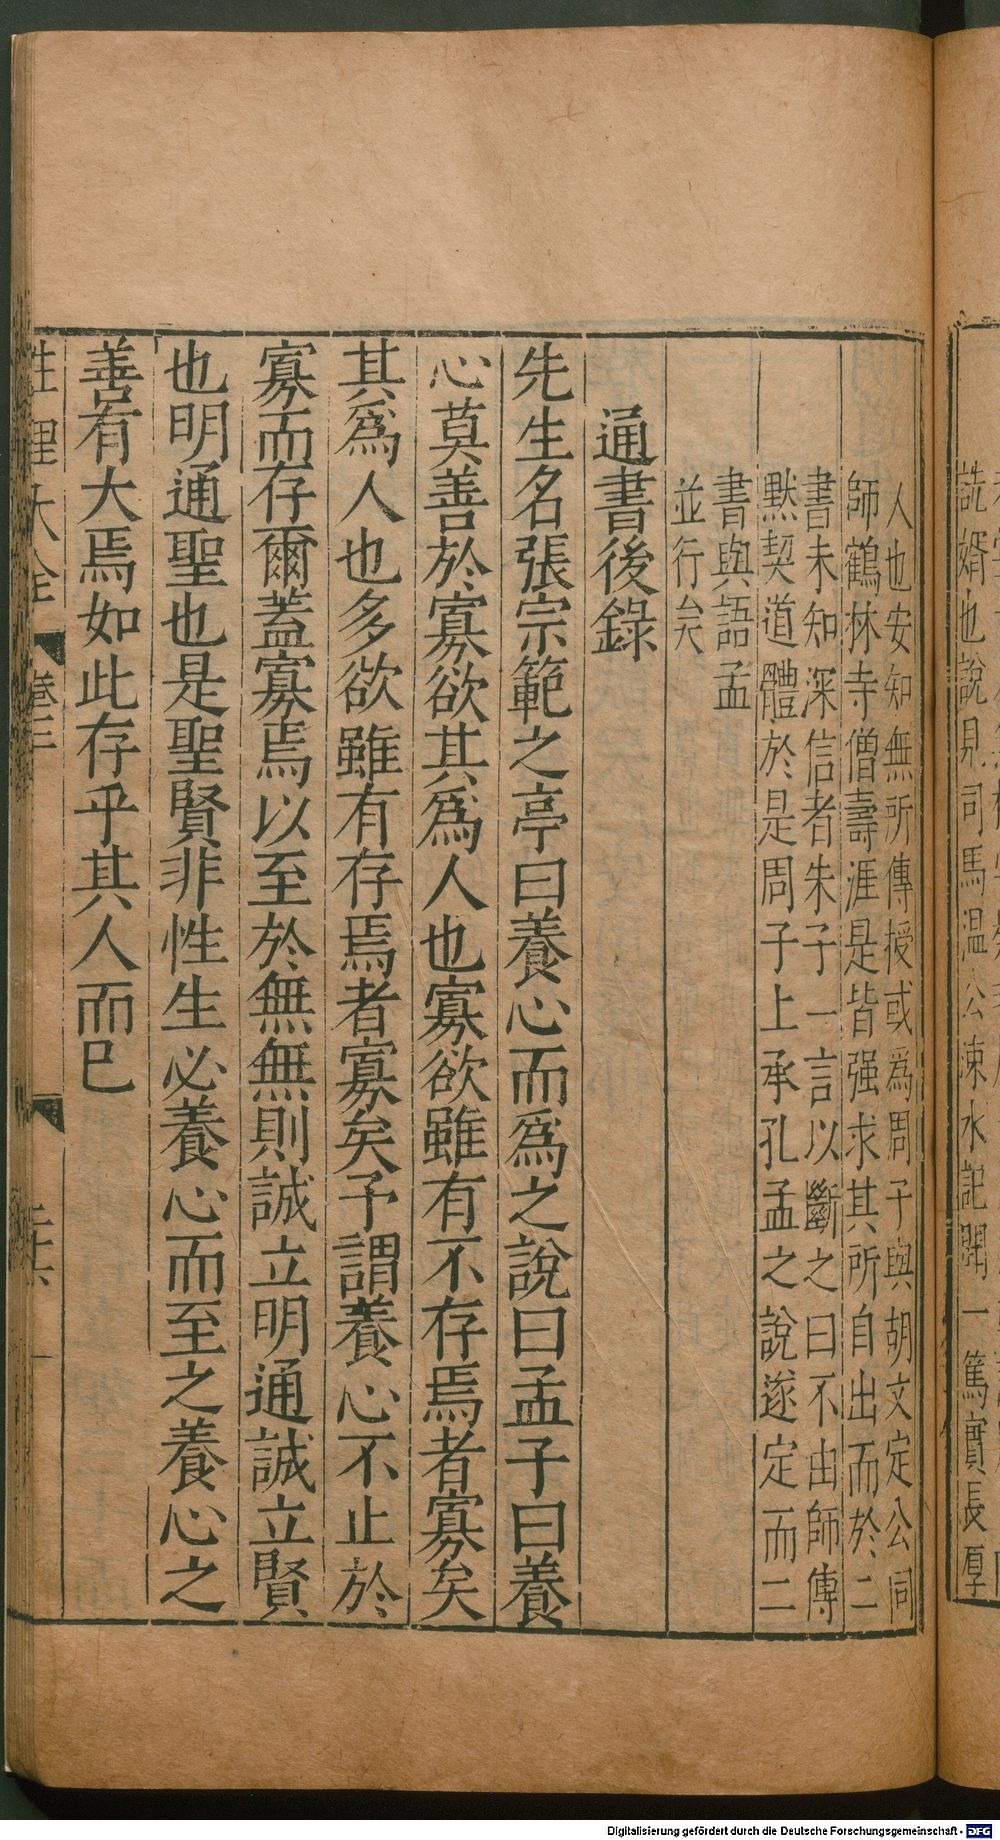 人也安知無所傳授或爲周子與胡文定公同
師鶴林寺僧壽涯是皆强求其所自出而於二
書未知深信者朱子一言以斷之曰不由師傳
黙契道體於是周子上承孔孟之說遂定而二
書與語孟
並行矣
通書後錄
先生名張宗範之亭曰養心而爲之說曰孟子曰養
心莫善於寡欲其爲人也寡欲雖有不存焉者寡矣
其爲人也多欲雖有存焉者寡矣予謂養心不止於
寡而存爾蓋寡焉以至於無無則誠立明通誠立賢
也明通聖也是聖賢非性生必養心而至之養心之
善有大焉如此存乎其人而已
性理大全 卷三
說婿也說見司馬温公涑水記聞一篤實長厚
Digitalisierung gefördert durch die Deutsche Forschungsgemeinschaft - DFG